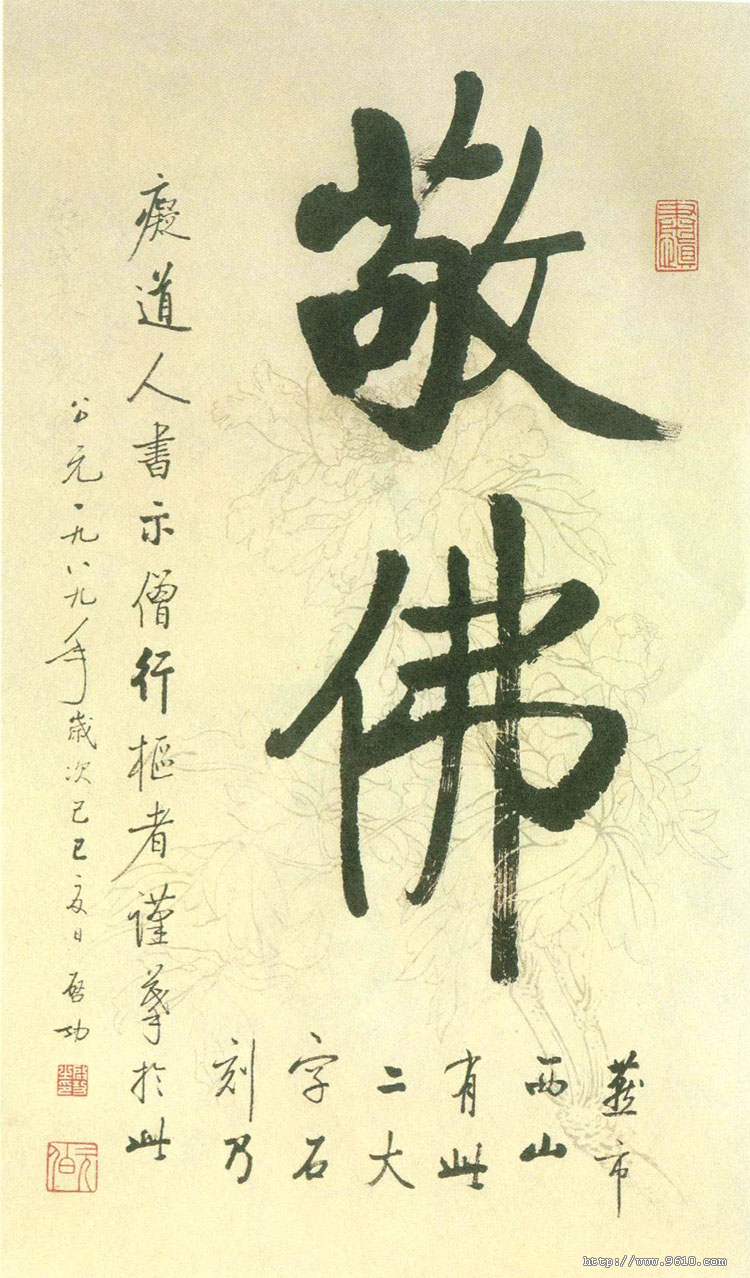 敬佛
燕市
西山
有此
二大
字石
刻乃
癡道人书示僧行樞者谨摹於此
公元一九八九年歲次己巳夏日 启功
http://www.9610.com